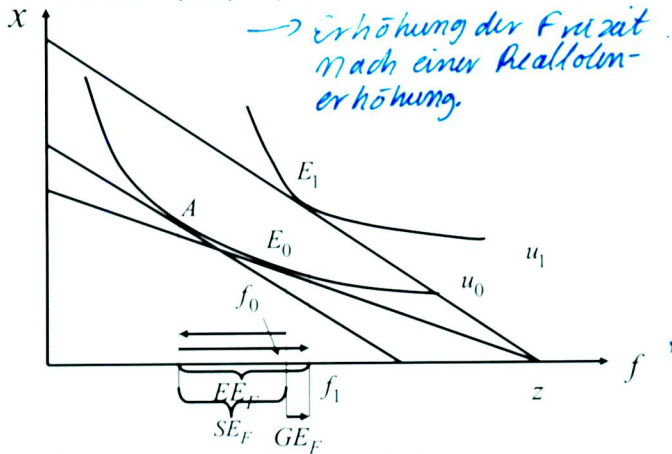 x
→ Erhöhung der Freizeit
nach einer Reallohn-
erhöhung.
E₁
A
E₀
u₁
u₀
f₀
f
EE_F
f₁
z
SE_F
GE_F